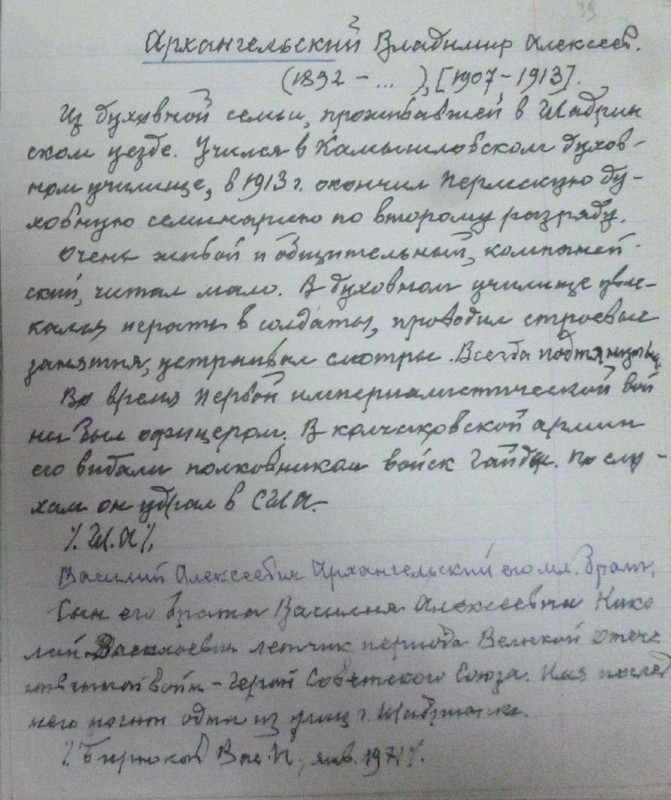 39
Архангельский Владимир Алексеев.
(1892 – ... ), [1907 – 1913].
Из духовной семьи, проживавшей в Шадрин
ском уезде. Учился в Камышловском духов-
ном училище, в 1913 г. окончил Пермскую ду-
ховную семинарию по второму разряду.
Очень живой и общительный, компаней-
ский, читал мало. В духовном училище увле-
кался играть в солдаты, проводил строевые
занятия, устраивал смотры. Всегда подтянутый
Во время первой империалистической вой
ны был офицером. В колчаковской армии
его видали полковником войск Гайды. По слу-
хам он удрал в США.
Василий Алексеевич Архангельский его мл. брат.
Сын его брата Василия Алексеевича Нико
лай Васильевич летчик периода Великой Отече
ственной войны – Герой Советского Союза. Имя послед
него носит одна из улиц г. Шадринска.
% Бирюков Вл. П., янв. 1971 %.